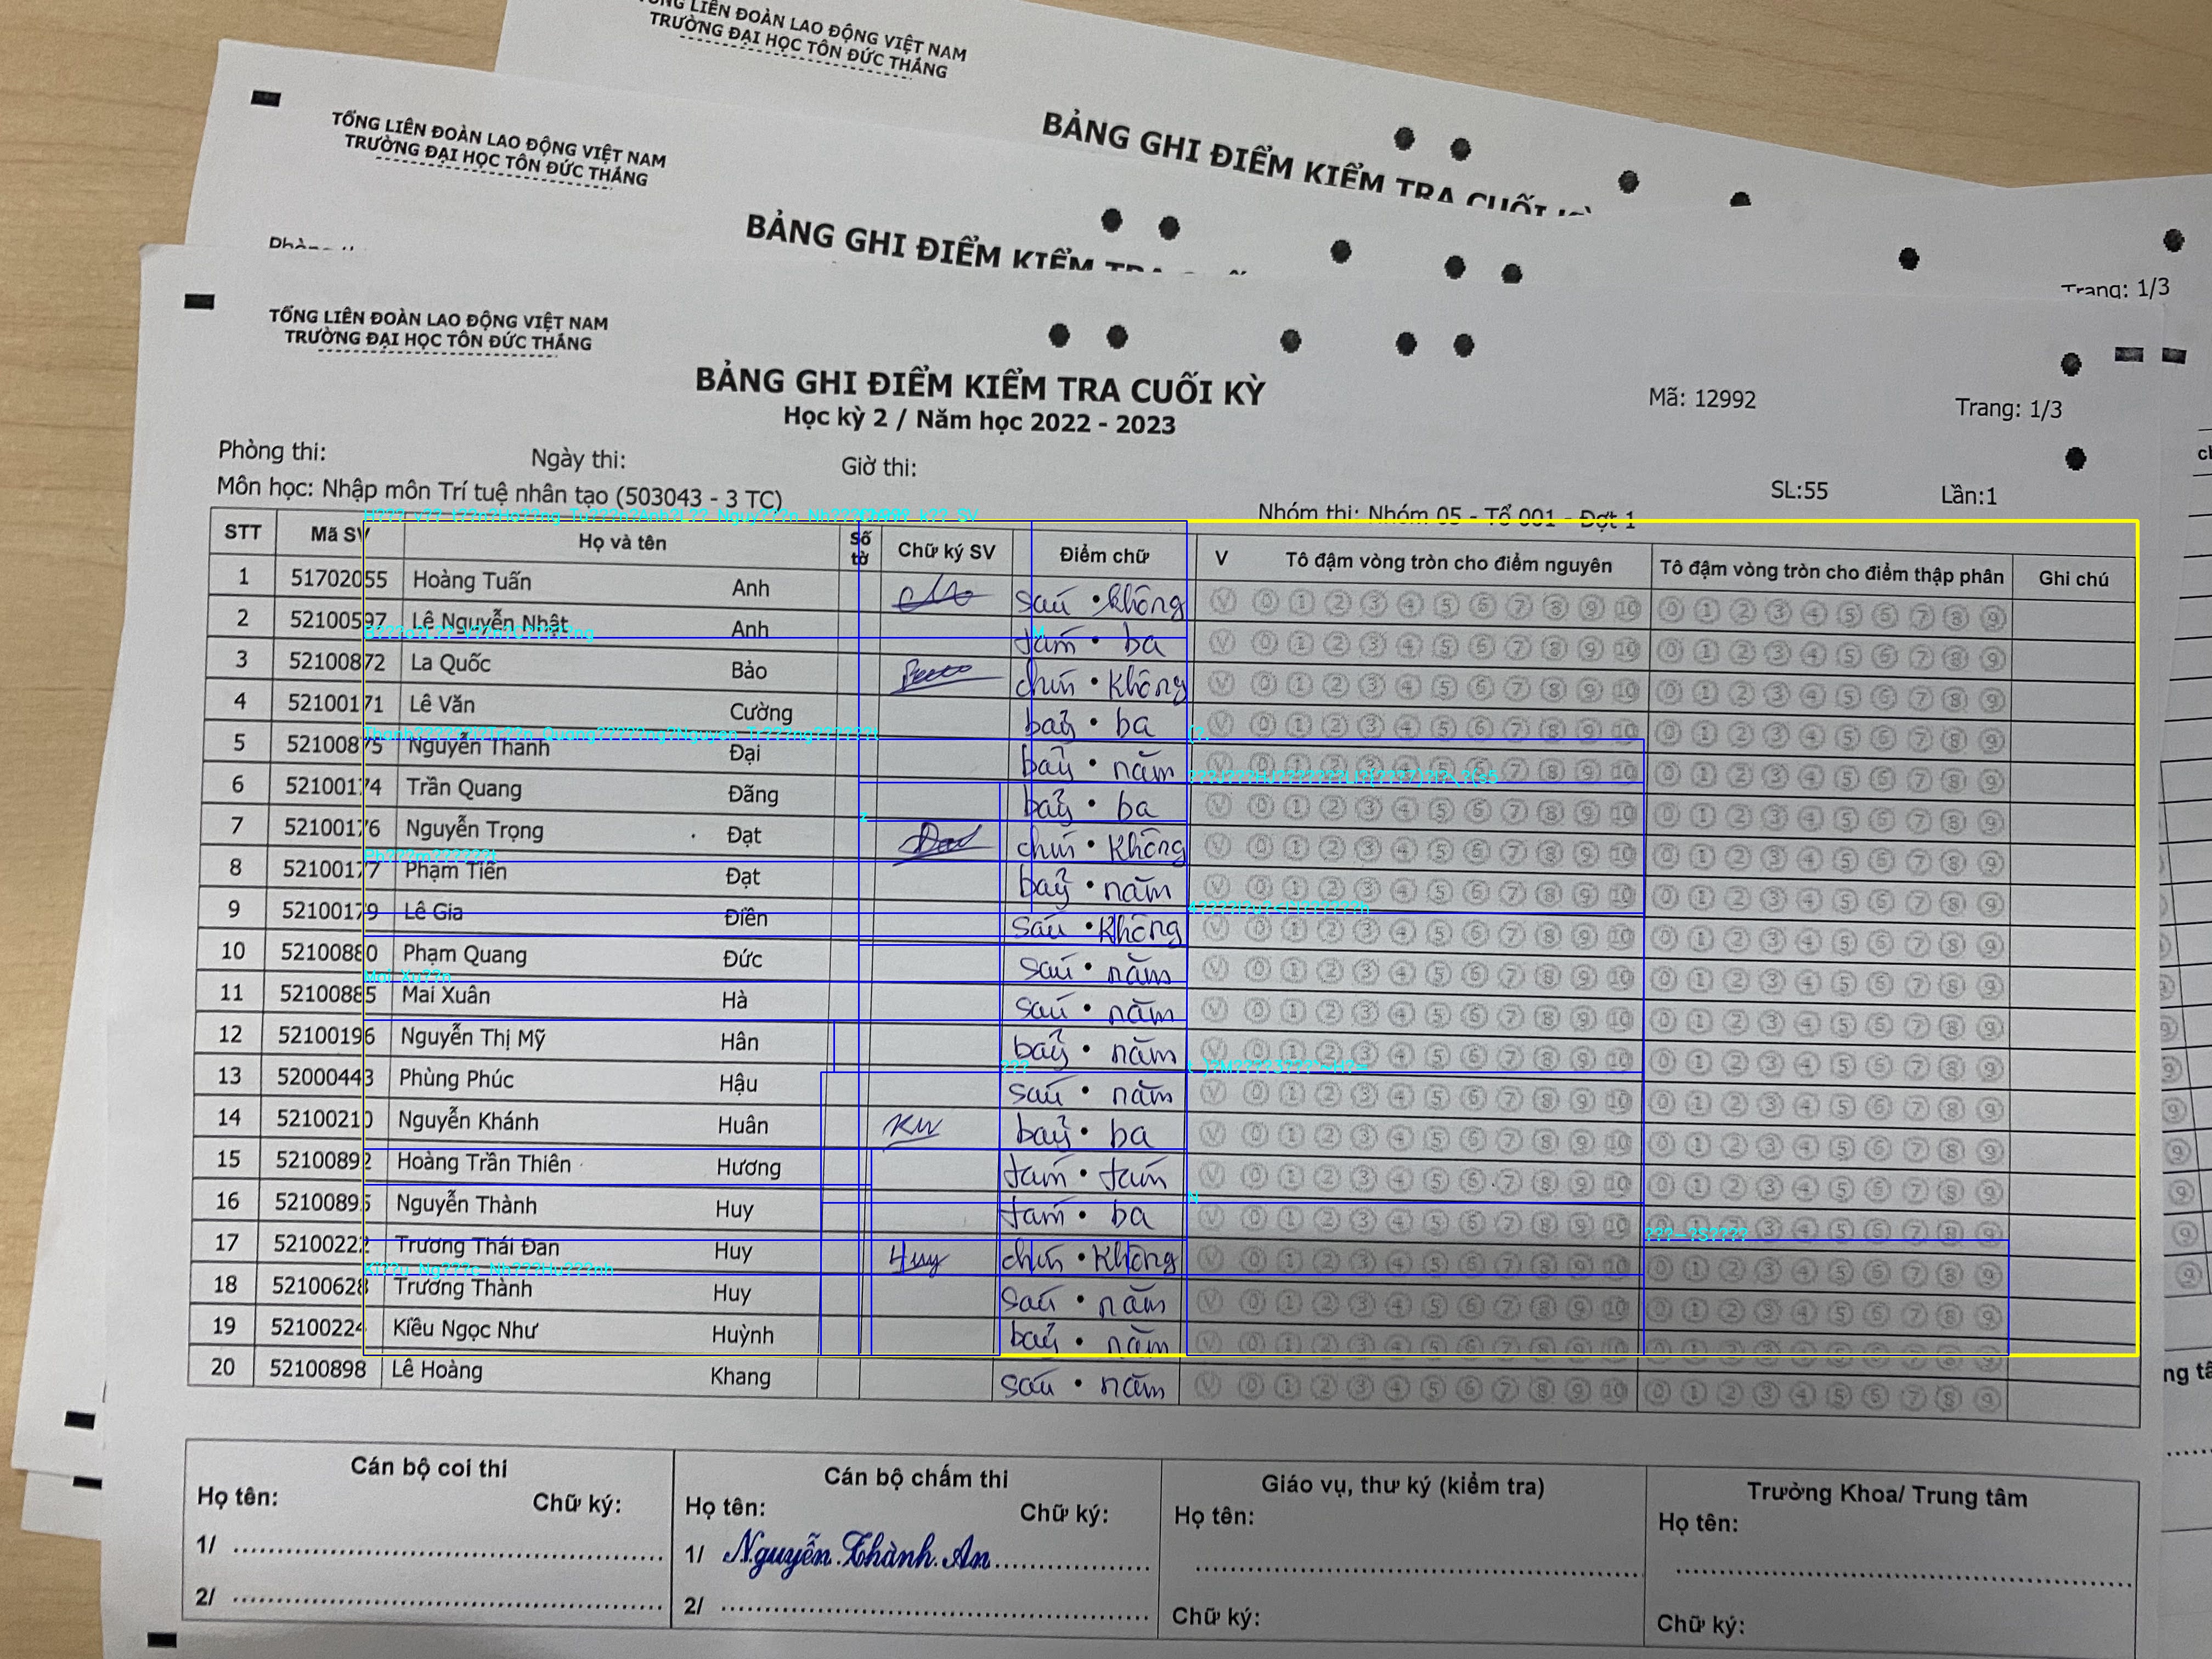 TỔNG LIÊN ĐOÀN LAO ĐỘNG VIỆT NAM
TRƯỜNG ĐẠI HỌC TÔN ĐỨC THẮNG
BẢNG GHI ĐIỂM KIỂM TRA CUỐI KỲ
TỔNG LIÊN ĐOÀN LAO ĐỘNG VIỆT NAM
TRƯỜNG ĐẠI HỌC TÔN ĐỨC THẮNG
BẢNG GHI ĐIỂM KIỂM
Trang: 1/3
TỔNG LIÊN ĐOÀN LAO ĐỘNG VIỆT NAM
TRƯỜNG ĐẠI HỌC TÔN ĐỨC THẮNG
BẢNG GHI ĐIỂM KIỂM TRA CUỐI KỲ
Học kỳ 2 / Năm học 2022 - 2023
Mã: 12992 Trang: 1/3
Phòng thi: Ngày thi: Giờ thi:
Môn học: Nhập môn Trí tuệ nhân tạo (503043 - 3 TC) SL:55 Lần:1
Nhóm thi: Nhóm 05 - Tổ 001 - Đợt 1
STT Mã SV Họ và tên Số tờ Chữ ký SV Điểm chữ V Tô đậm vòng tròn cho điểm nguyên Tô đậm vòng tròn cho điểm thập phân Ghi chú
1 51702055 Hoàng Tuấn Anh sáu • không V 0 1 2 3 4 5 6 7 8 9 10 0 1 2 3 4 5 6 7 8 9
2 52100597 Lê Nguyễn Nhật Anh tám • ba V 0 1 2 3 4 5 6 7 8 9 10 0 1 2 3 4 5 6 7 8 9
3 52100872 La Quốc Bảo chín • không V 0 1 2 3 4 5 6 7 8 9 10 0 1 2 3 4 5 6 7 8 9
4 52100171 Lê Văn Cường bảy • ba V 0 1 2 3 4 5 6 7 8 9 10 0 1 2 3 4 5 6 7 8 9
5 52100875 Nguyễn Thành Đại bảy • năm V 0 1 2 3 4 5 6 7 8 9 10 0 1 2 3 4 5 6 7 8 9
6 52100174 Trần Quang Đãng bảy • ba V 0 1 2 3 4 5 6 7 8 9 10 0 1 2 3 4 5 6 7 8 9
7 52100176 Nguyễn Trọng Đạt Đạt chín • không V 0 1 2 3 4 5 6 7 8 9 10 0 1 2 3 4 5 6 7 8 9
8 52100177 Phạm Tiến Đạt bảy • năm V 0 1 2 3 4 5 6 7 8 9 10 0 1 2 3 4 5 6 7 8 9
9 52100179 Lê Gia Điền sáu • không V 0 1 2 3 4 5 6 7 8 9 10 0 1 2 3 4 5 6 7 8 9
10 52100880 Phạm Quang Đức sáu • năm V 0 1 2 3 4 5 6 7 8 9 10 0 1 2 3 4 5 6 7 8 9
11 52100885 Mai Xuân Hà sáu • năm V 0 1 2 3 4 5 6 7 8 9 10 0 1 2 3 4 5 6 7 8 9
12 52100196 Nguyễn Thị Mỹ Hân bảy • năm V 0 1 2 3 4 5 6 7 8 9 10 0 1 2 3 4 5 6 7 8 9
13 52000443 Phùng Phúc Hậu sáu • năm V 0 1 2 3 4 5 6 7 8 9 10 0 1 2 3 4 5 6 7 8 9
14 52100210 Nguyễn Khánh Huân bảy • ba V 0 1 2 3 4 5 6 7 8 9 10 0 1 2 3 4 5 6 7 8 9
15 52100892 Hoàng Trần Thiên Hương tám • tám V 0 1 2 3 4 5 6 7 8 9 10 0 1 2 3 4 5 6 7 8 9
16 52100895 Nguyễn Thành Huy tám • ba V 0 1 2 3 4 5 6 7 8 9 10 3 4 5 6 7 8 9
17 52100222 Trương Thái Đan Huy Huy chín • không V 0 1 2 3 4 5 6 7 8 9 10 0 1 2 3 4 5 6 7 8 9
18 52100628 Trương Thành Huy sáu • năm V 0 1 2 3 4 5 6 7 8 9 10 0 1 2 3 4 5 6 7 8 9
19 52100224 Kiều Ngọc Như Huỳnh bảy • năm V 0 1 2 3 4 5 6 7 8 9 10 0 1 2 3 4 5 6 7 8 9
20 52100898 Lê Hoàng Khang sáu • năm V 0 1 2 3 4 5 6 7 8 9 10 0 1 2 3 4 5 6 7 8 9
Cán bộ coi thi
Họ tên: Chữ ký:
1/
2/
Cán bộ chấm thi
Họ tên: Chữ ký:
1/ Nguyễn Thành An
2/
Giáo vụ, thư ký (kiểm tra)
Họ tên:
Chữ ký:
Trưởng Khoa/ Trung tâm
Họ tên:
Chữ ký: